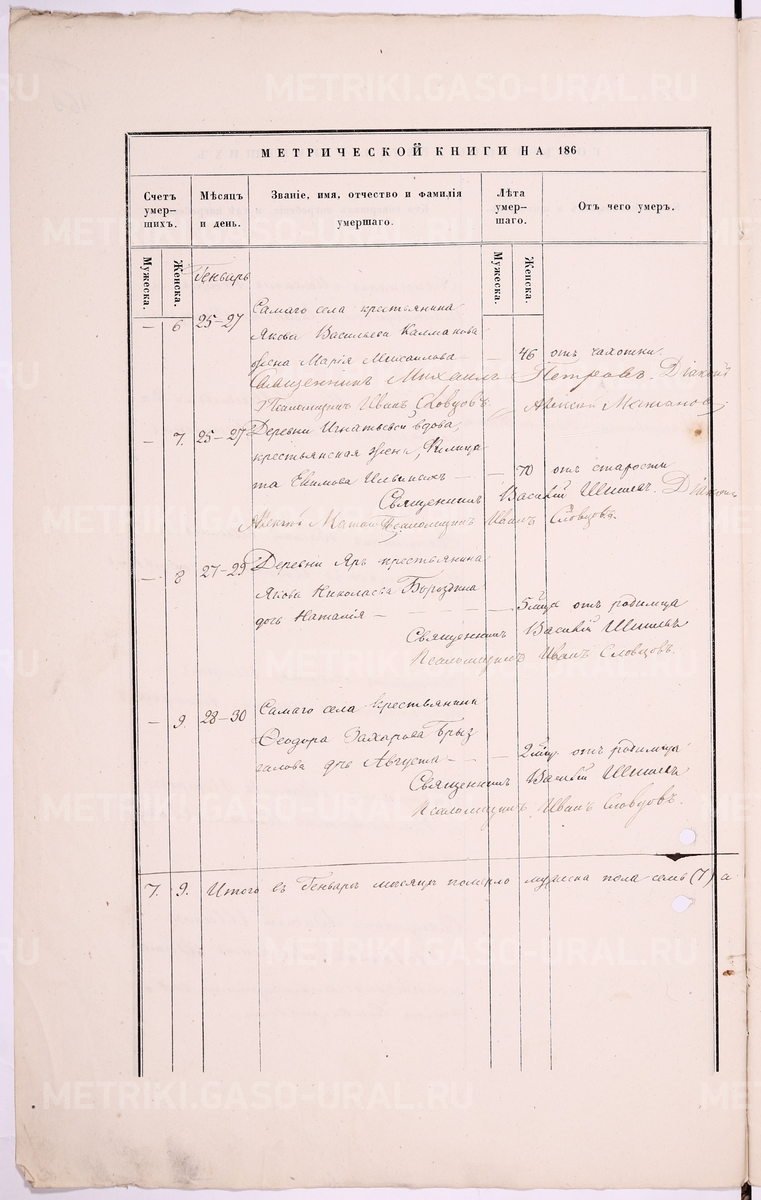 МЕТРИЧЕСКОЙ КНИГИ НА 186
Счетъ умер-шихъ.
Мѣсяцъ и день.
Званіе, имя, отчество и фамилія умершаго.
Лѣта умер-шаго.
Отъ чего умеръ.
Мужеска.
Женска.
Генварь
Мужеска.
Женска.
— 6 25-27 Самаго села крестьянина
Якова Васильева Калмакова
жена Марія Моисаилова — — 46 отъ чахотки.
Священникъ Михаилъ Петровъ. Діаконъ
Псаломщикъ Иванъ Словцовъ Алексѣй
— 7. 25-27 Деревни Игнатьевой вдова,
крестьянская жена, Филица
та Евимова Ильиныхъ — — 70 отъ старости
Священникъ Василій Діаконъ
Алексѣй Псаломщикъ Иванъ Словцовъ.
— 8 27-29 Деревни Яръ крестьянина
Якова Николаева Бороздина
дочь Наталія — — 5 мца отъ родимца
Священникъ Василій
Псаломщикъ Иванъ Словцовъ.
— 9. 28-30 Самаго села крестьянина
Ѳеодора Захарова Брыз
галова дочь Августа — — 2 мца отъ родимца
Священникъ Василій
Псаломщикъ Иванъ Словцовъ.
7. 9. Итого въ Генварѣ мѣсяцѣ померло мужеска пола семь (7) а
METRIKI.GASO-URAL.RU